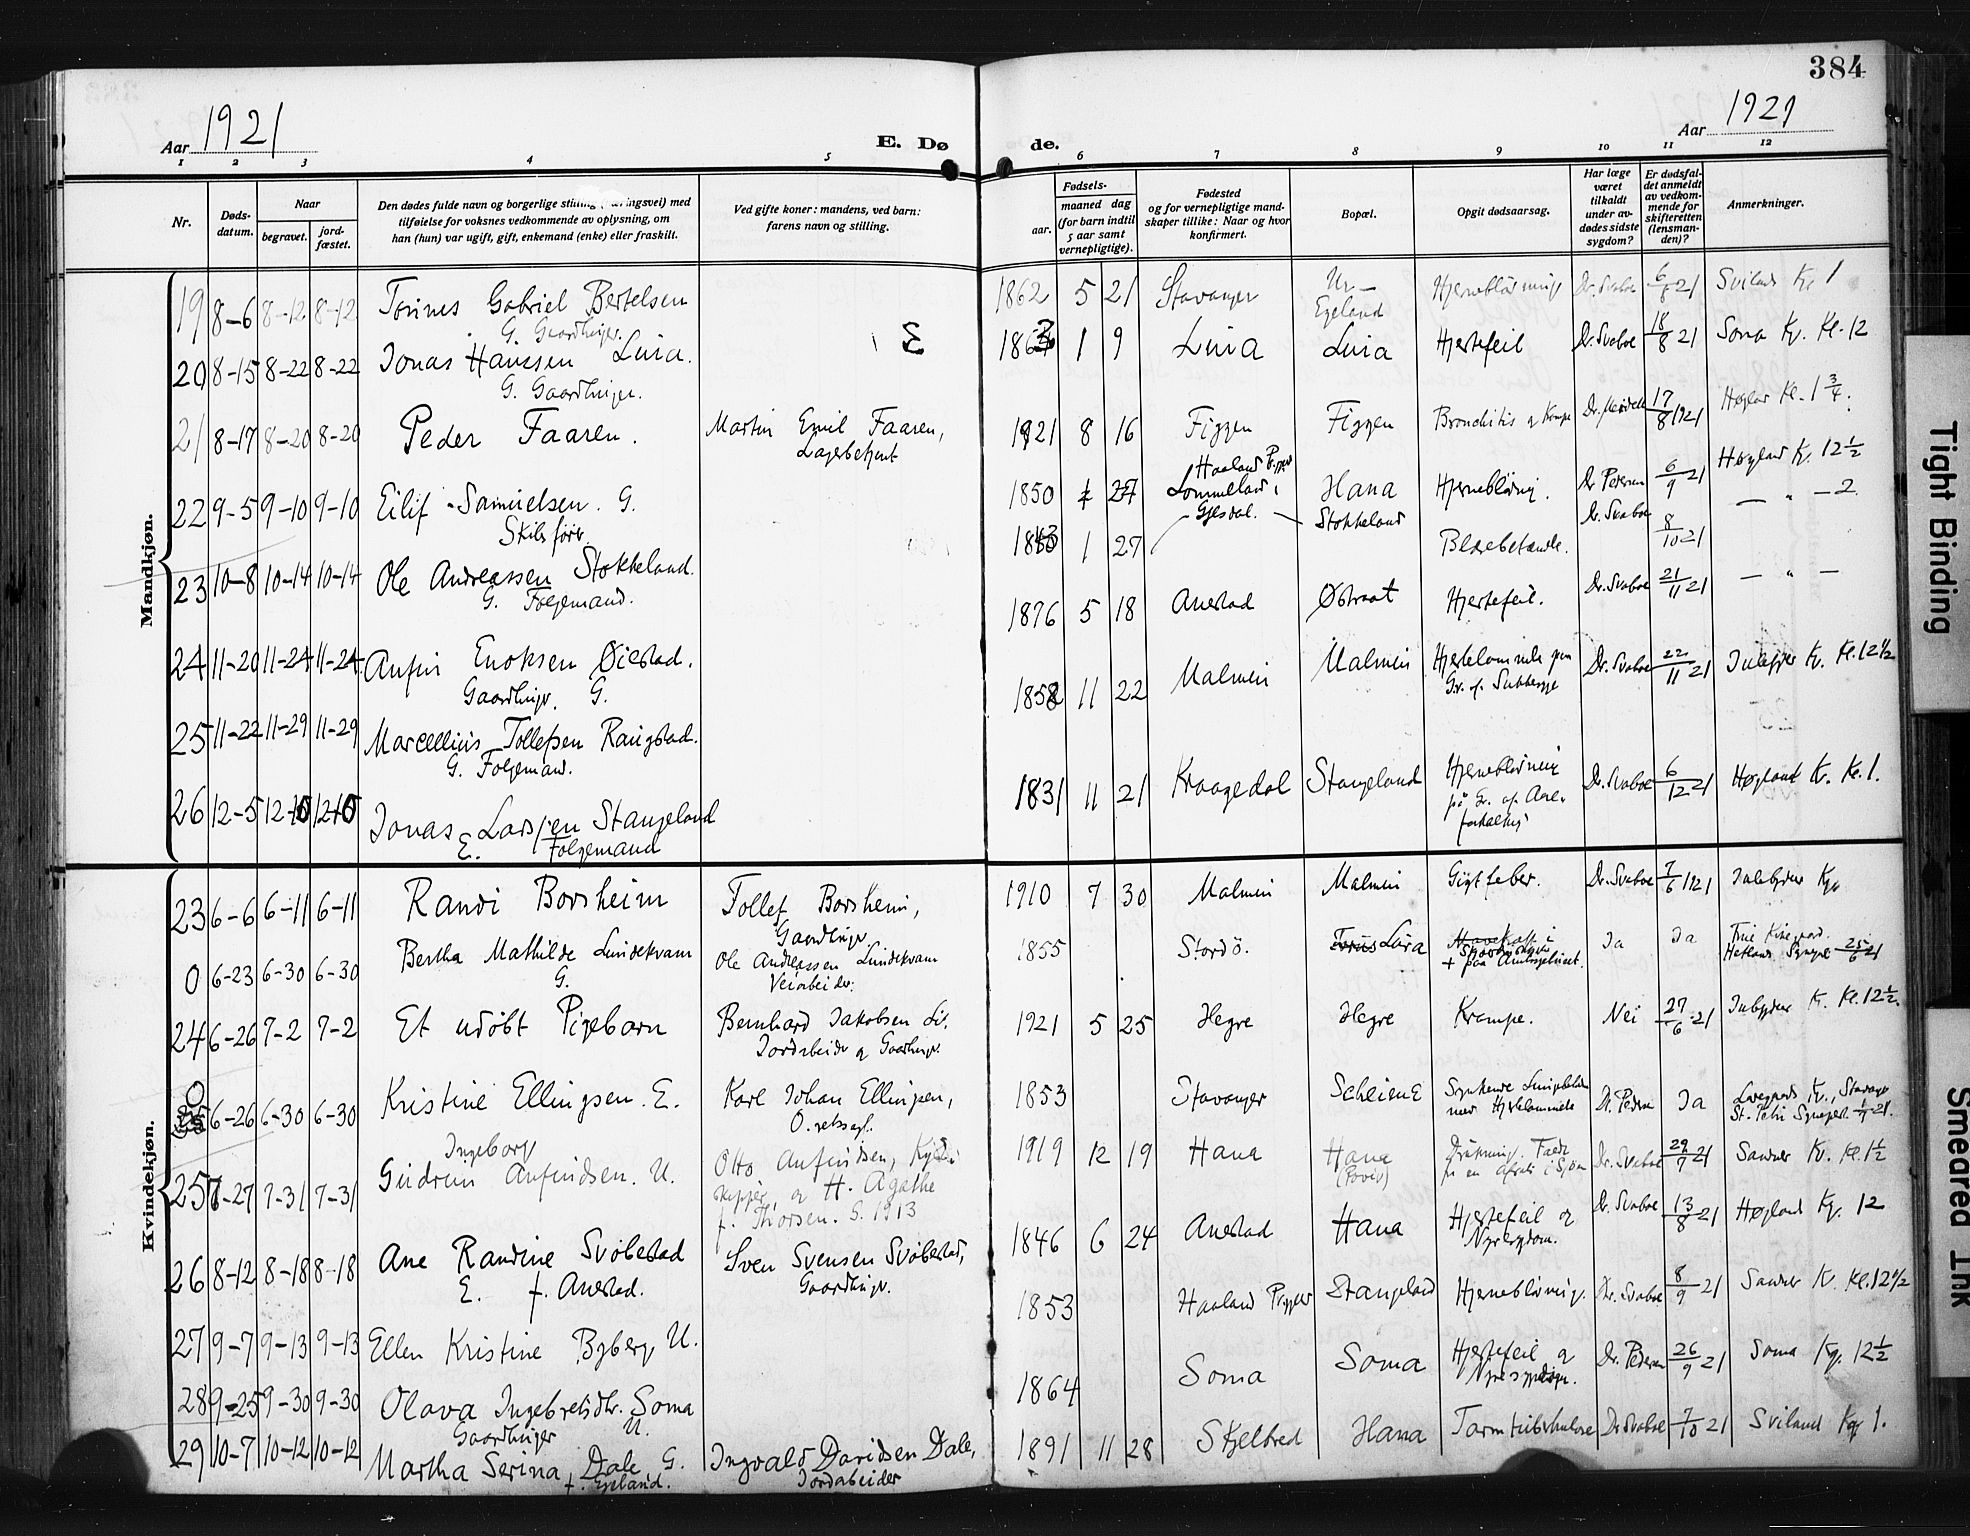 384
Aar 1921
E. Dø
de.
Aar 1921
1 2 3 4 5 6 7 8 9 10 11 12
Nr.
Døds-
datum.
Naar
begravet.
jord-
fæstet.
Den dødes fulde navn og borgerlige stilling ( æringsvei) med
tilføielse for voksnes vedkommende av oplysning, om
han (hun) var ugift, gift, enkemand (enke) eller fraskilt.
Ved gifte koner: mandens, ved barn:
farens navn og stilling.
Fødsels-
aar.
maaned dag
(for barn indtil
5 aar samt
vernepligtige).
Fødested
og for vernepligtige mand-
skaper tillike: Naar og hvor
konfirmert.
Bopæl.
Opgit dødsaarsag.
Har læge
været
tilkaldt
under av-
dødes sidste
sygdom?
Er dødsfal-
det anmeldt
av vedkom-
mende for
skifteretten
(lensman-
den)?
Anmerkninger.
Mandkjøn.
19 8-6 8-12 8-12 Tønnes Gabriel Bertelsen 1862 5 21 Stavanger Ur- Hjerneblødning Dr. Svaboe 6/8 21 Sviland Kg. 1
G. Gaardbruger. Egeland
20 8-15 8-22 8-22 Jonas Hanssen Lura. E 1863 1 9 Lura Lura Hjertefeil Dr. Svaboe 18/8 21 Soma Kg. Kl. 12
G. Gaardbruger.
21 8-17 8-20 8-20 Peder Faaren. Martin Emil Faaren, 1921 8 16 Figgen Figgen Bronchitis og Krampe 17/8 1921 Høyland Kl. 1 3/4.
Lagerbetjent
22 9-5 9-10 9-10 Eilif Samuelsen. G. 1850 27 Hana Hjerneblødning. Dr. Pedersen 6/9 21 Høyland Kg. 12 1/2
Gjesdal.
23 10-8 10-14 10-14 Ole Andreassen Stokkeland. 1 27 Stokkeland Blærebetændelse. Dr. Svaboe 8/10 21 — " — 2
G. Følgemand.
24 11-20 11-24 11-24 Anfin Enoksen Øiestad. 1876 5 18 Aanestad Østraat Hjertefeil. Dr. Svaboe 21/11 21 — " —
Gaardbruger. G.
25 11-22 11-29 11-29 Marcellius Tollefsen Raugstad. 1852 11 22 Malmein Malmein Hjertelammelse paa Dr. Svaboe 22/11 21 Julebygden Kg. Kl. 12 1/2
G. Følgemand. Gr. af Sukkersyge
26 12-5 12-10 12-10 Jonas Larssen Stangeland 1831 11 21 Kraagedal Stangeland Hjerneblødning Dr. Svaboe 6/12 21 Høyland Kg. Kl. 1.
E. Følgemand på Gr. af Aare-
forkalkning
Kvindekjøn.
23 6-6 6-11 6-11 Randi Borsheim Tollef Borsheim, 1910 7 30 Malmein Malmein Gigtfeber. Dr. Svaboe 7/6 1921 Julebygden Kg.
Gaardbruger
0 6-23 6-30 6-30 Bertha Mathilde Lundekvam Ole Andreassen Lundekvam 1855 Stordö. Lura Ja Ja Frue Kirkegaard.
G. Veiarbeider. + paa Amtssygehuset. Hetland Sognepr. 25/6 21
24 6-26 7-2 7-2 Et udöbt Pigebarn Bernhard Jakobsen Li. 1921 5 25 Hegre Hegre Krampe. Nei 27/6 21 Julebygden K. Kl. 12 1/2
Jordarbeider og Gaardbruger.
0 6-26 6-30 6-30 Kristine Ellingsen. E. Karl Johan Ellingsen, 1853 Stavanger Scheiene Dr. Pedersen Ja Lagaards Kg., Stavanger
O.retssagf. med Hjertelammelse St. Petri Sognepr. 1/7 21.
25 7-27 7-31 7-31 Gudrun Ingeborg Anfindsen. U. Otto Anfindsen, 1919 12 19 Hana Hana Drukning. Faldt Dr. Svaboe 29/7 21 Sandnes Kg. Kl. 1 1/2
skipper, og H. Agathe
f. Thorsen. G. 1913
26 8-12 8-18 8-18 Ane Randine Svöbestad Sven Svensen Svöbestad, 1846 6 24 Aanestad Hana Hjertefeil og Dr. Svaboe 13/8 21 Høyland Kg. 12
E. f. Anestad. Gaardbruger. Nyresygdom.
27 9-7 9-13 9-13 Ellen Kristine Byberg U. 1853 Haaland Prgjeld Stangeland Hjerneblödning. Dr. Svaboe 8/9 21 Sandnes K. Kl. 12 1/2
28 9-25 9-30 9-30 Olava Ingebretsdtr. Soma 1864 Soma Soma Hjertefeil og Dr. Pedersen 26/9 21 Soma Kg. 12 1/2
Gaardbruger U. Nyresygdom.
29 10-7 10-12 10-12 Martha Serina Dale G. Ingvald Davidsen Dale, 1891 11 28 Skjelbred Hana Tarmtuberkulose Dr. Svaboe 7/10 21 Sviland Kg. 1.
f. Egeland. Jordarbeider
Tight Binding
Smeared Ink